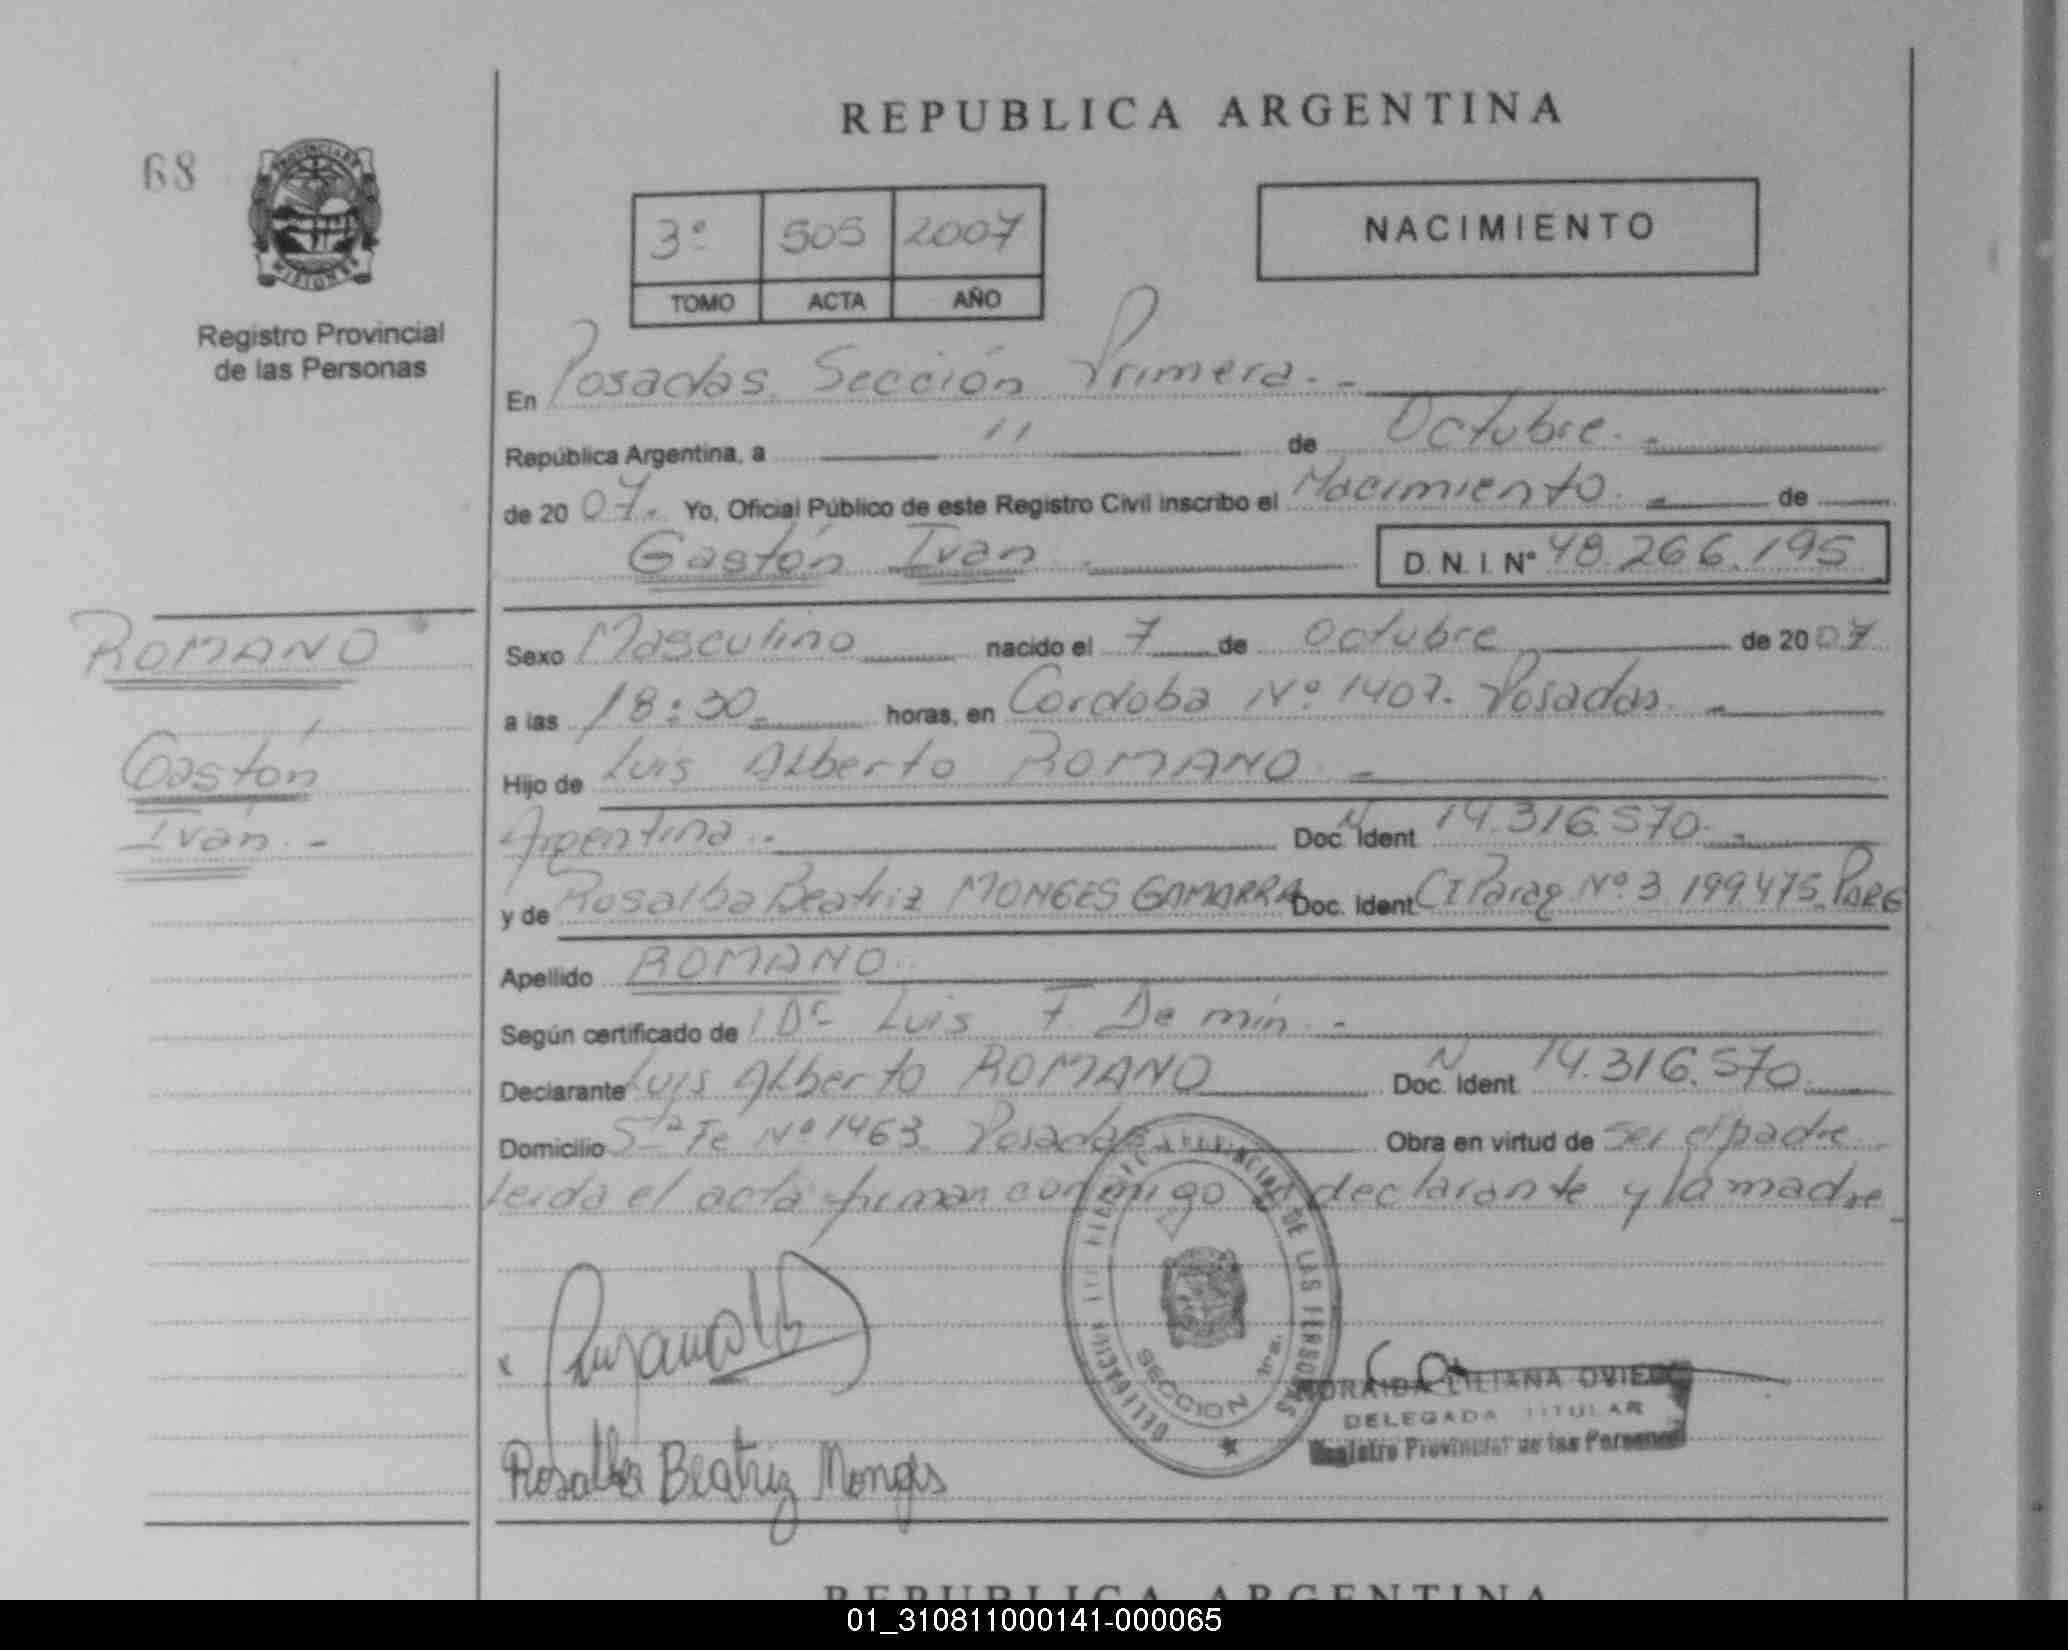 REPUBLICA ARGENTINA
68
PROVINCIA DE
MISIONES
Registro Provincial
de las Personas
3º 505 2007
TOMO ACTA AÑO
NACIMIENTO
En Posadas. Sección Primera.-
República Argentina, a 11 de Octubre.-
de 2007.- Yo, Oficial Público de este Registro Civil inscribo el Nacimiento.- de
Gastón Iván D.N.I. Nº 48.266.195
ROMANO
Gastón
Iván.-
Sexo Masculino nacido el 7 de Octubre de 2007
a las 18:30 horas, en Cordoba Nº 1407. Posadas.-
Hijo de Luis Alberto ROMANO.-
Argentina.- Doc. Ident. N 14.316.570.-
y de Rosalba Beatriz MONGES GAMARRA Doc. Ident. CI Parag Nº 3.199.475. PARG
Apellido ROMANO.
Según certificado de Dr Luis F. De min.-
Declarante Luis Alberto ROMANO Doc. Ident. N 14.316.570.
Domicilio Sta Fe Nº 1463. Posadas Obra en virtud de ser el padre
Leida el acta firman conmigo el declarante y la madre
DE LAS PERSONAS
SECCION 1ra.
LILIANA OVIEDO
DELEGADA TITULAR
Registro Provincial de las Personas
Rosalba Beatriz Monges
REPUBLICA ARGENTINA
01_310811000141-000065